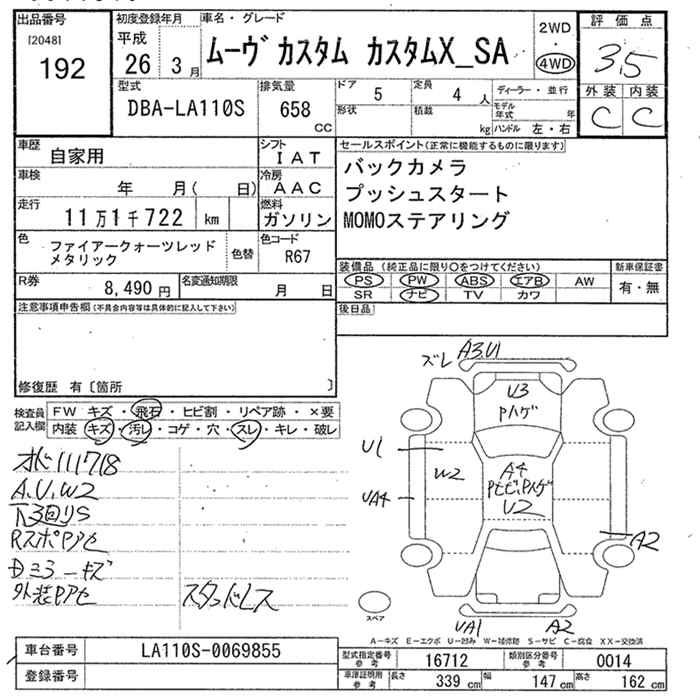 出品番号
[2048]
192
初度登録年月
平成
26 3月
車名・グレード
ムーヴ カスタム カスタムX_SA
2WD
・
4WD
評価点
3.5
外装 内装
C C
型式
DBA-LA110S
排気量
658
cc
ドア 5
定員 4 人
形状
積載 kg
ディーラー・並行
モデル年式 年
ハンドル 左・右
車歴
自家用
シフト
IAT
車検
年 月( 日)
冷房
AAC
走行
11万1千722 km
燃料
ガソリン
色
ファイアークォーツレッド
メタリック
色替
色コード
R67
R券
8,490円
名変通知期限
月 日
セールスポイント(正常に機能するものに限ります)
バックカメラ
プッシュスタート
MOMOステアリング
装備品 (純正品に限り○をつけてください)
PS PW ABS エアB AW
SR ナビ TV カワ
新車保証書
有・無
後日品
注意事項申告欄(不具合内容等は具体的に記入して下さい)
修復歴 有〔箇所 〕
検査員
記入欄
FW キズ・飛石・ヒビ割・リペア跡・×要
内装 キズ・汚レ・コゲ・穴・スレ・キレ・破レ
111718
A.U.W2
下回りS
RスポPアセ
キズ
外装PPアセ
スタッドレス
ズレ A3.U1
U3
Pハゲ
U1
W2
UA4
A4
PヒビPハゲ
U2
A2
UA1
A2
スペア
A-キズ E-エクボ U-凹み W-補修跡 S-サビ C-腐食 XX-交換済
車台番号
LA110S-0069855
登録番号
型式指定番号
参考
16712
類別区分番号
参考
0014
車庫証明用
参考
長さ 339 cm 幅 147 cm 高さ 162 cm